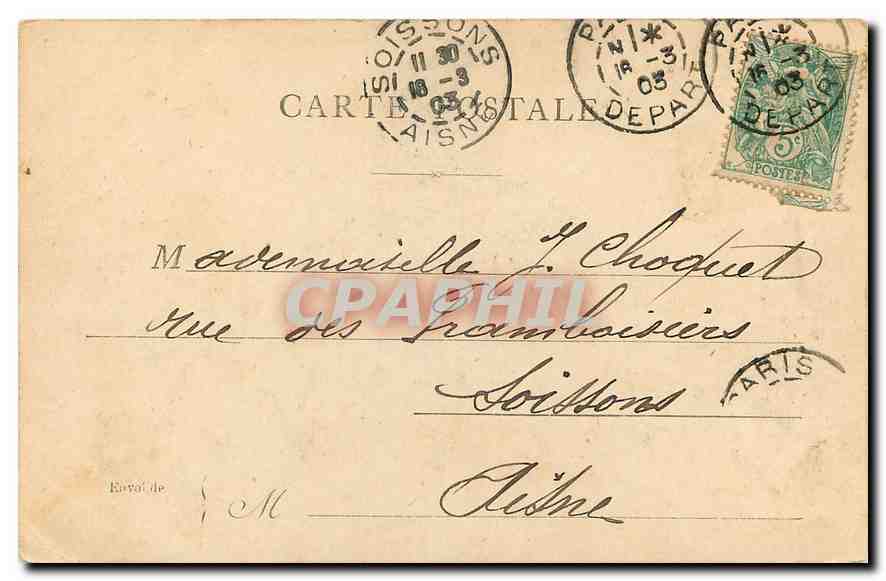 SOISSONS
11 30
18 - 3
03
AISNE
1 *
18 - 3
03
DEPART
1 *
18 - 3
03
DEPART
5c
POSTES
CARTE POSTALE
Mademoiselle J. Choquet
CPAPHIL
rue des Framboisiers
Soissons
PARIS
Aisne
Envoi de
M